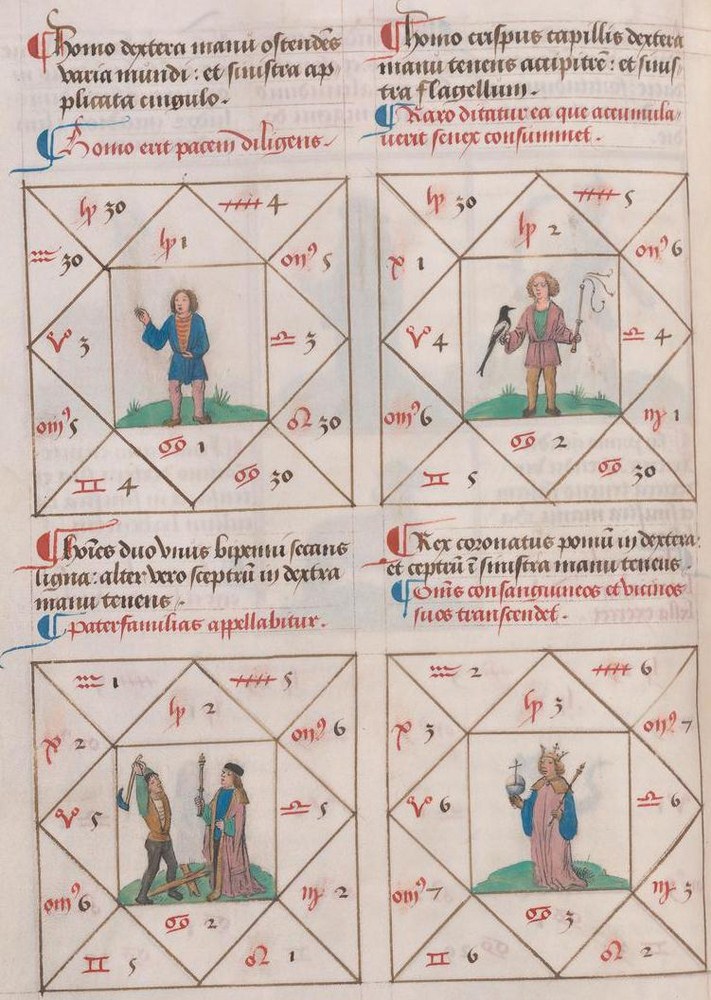 Homo dextera manū ostendēs
varia mundi : et sinistra ap
plicata cingulo .
Homo erit pacem diligens .
♑ 30 ♐ 4
♑ 1
♒ 30 om⁹ 5
♈ 3 ♎ 3
om⁹ 5 ♌ 30
♋ 1
♊ 4 ♋ 30
Homo crispus capillis dextera
manu tenens accipitrē : et sinis-
tra flagellum .
Raro ditatur ea que accumula-
uerit senex consummet .
♑ 30 ♐ 5
♑ 2
♓ 1 om⁹ 6
♈ 4 ♎ 4
om⁹ 6 ♍ 1
♋ 2
♊ 5 ♋ 30
Hoīes duo vnus bipenni secans
ligna : alter vero sceptrū in dextra
manu tenens .
Paterfamilias appellabitur .
♒ 1 ♐ 5
♑ 2
♓ 2 om⁹ 6
♈ 5 ♎ 5
om⁹ 6 ♍ 2
♋ 2
♊ 5 ♌ 1
Rex coronatus pomū in dextera :
et ceptrū ī sinistra manu tenens .
Om̄s consanguineos et vicinos
suos transcendet .
♒ 2 ♐ 6
♑ 3
♓ 3 om⁹ 7
♈ 6 ♎ 6
om⁹ 7 ♍ 3
♋ 3
♊ 6 ♌ 2